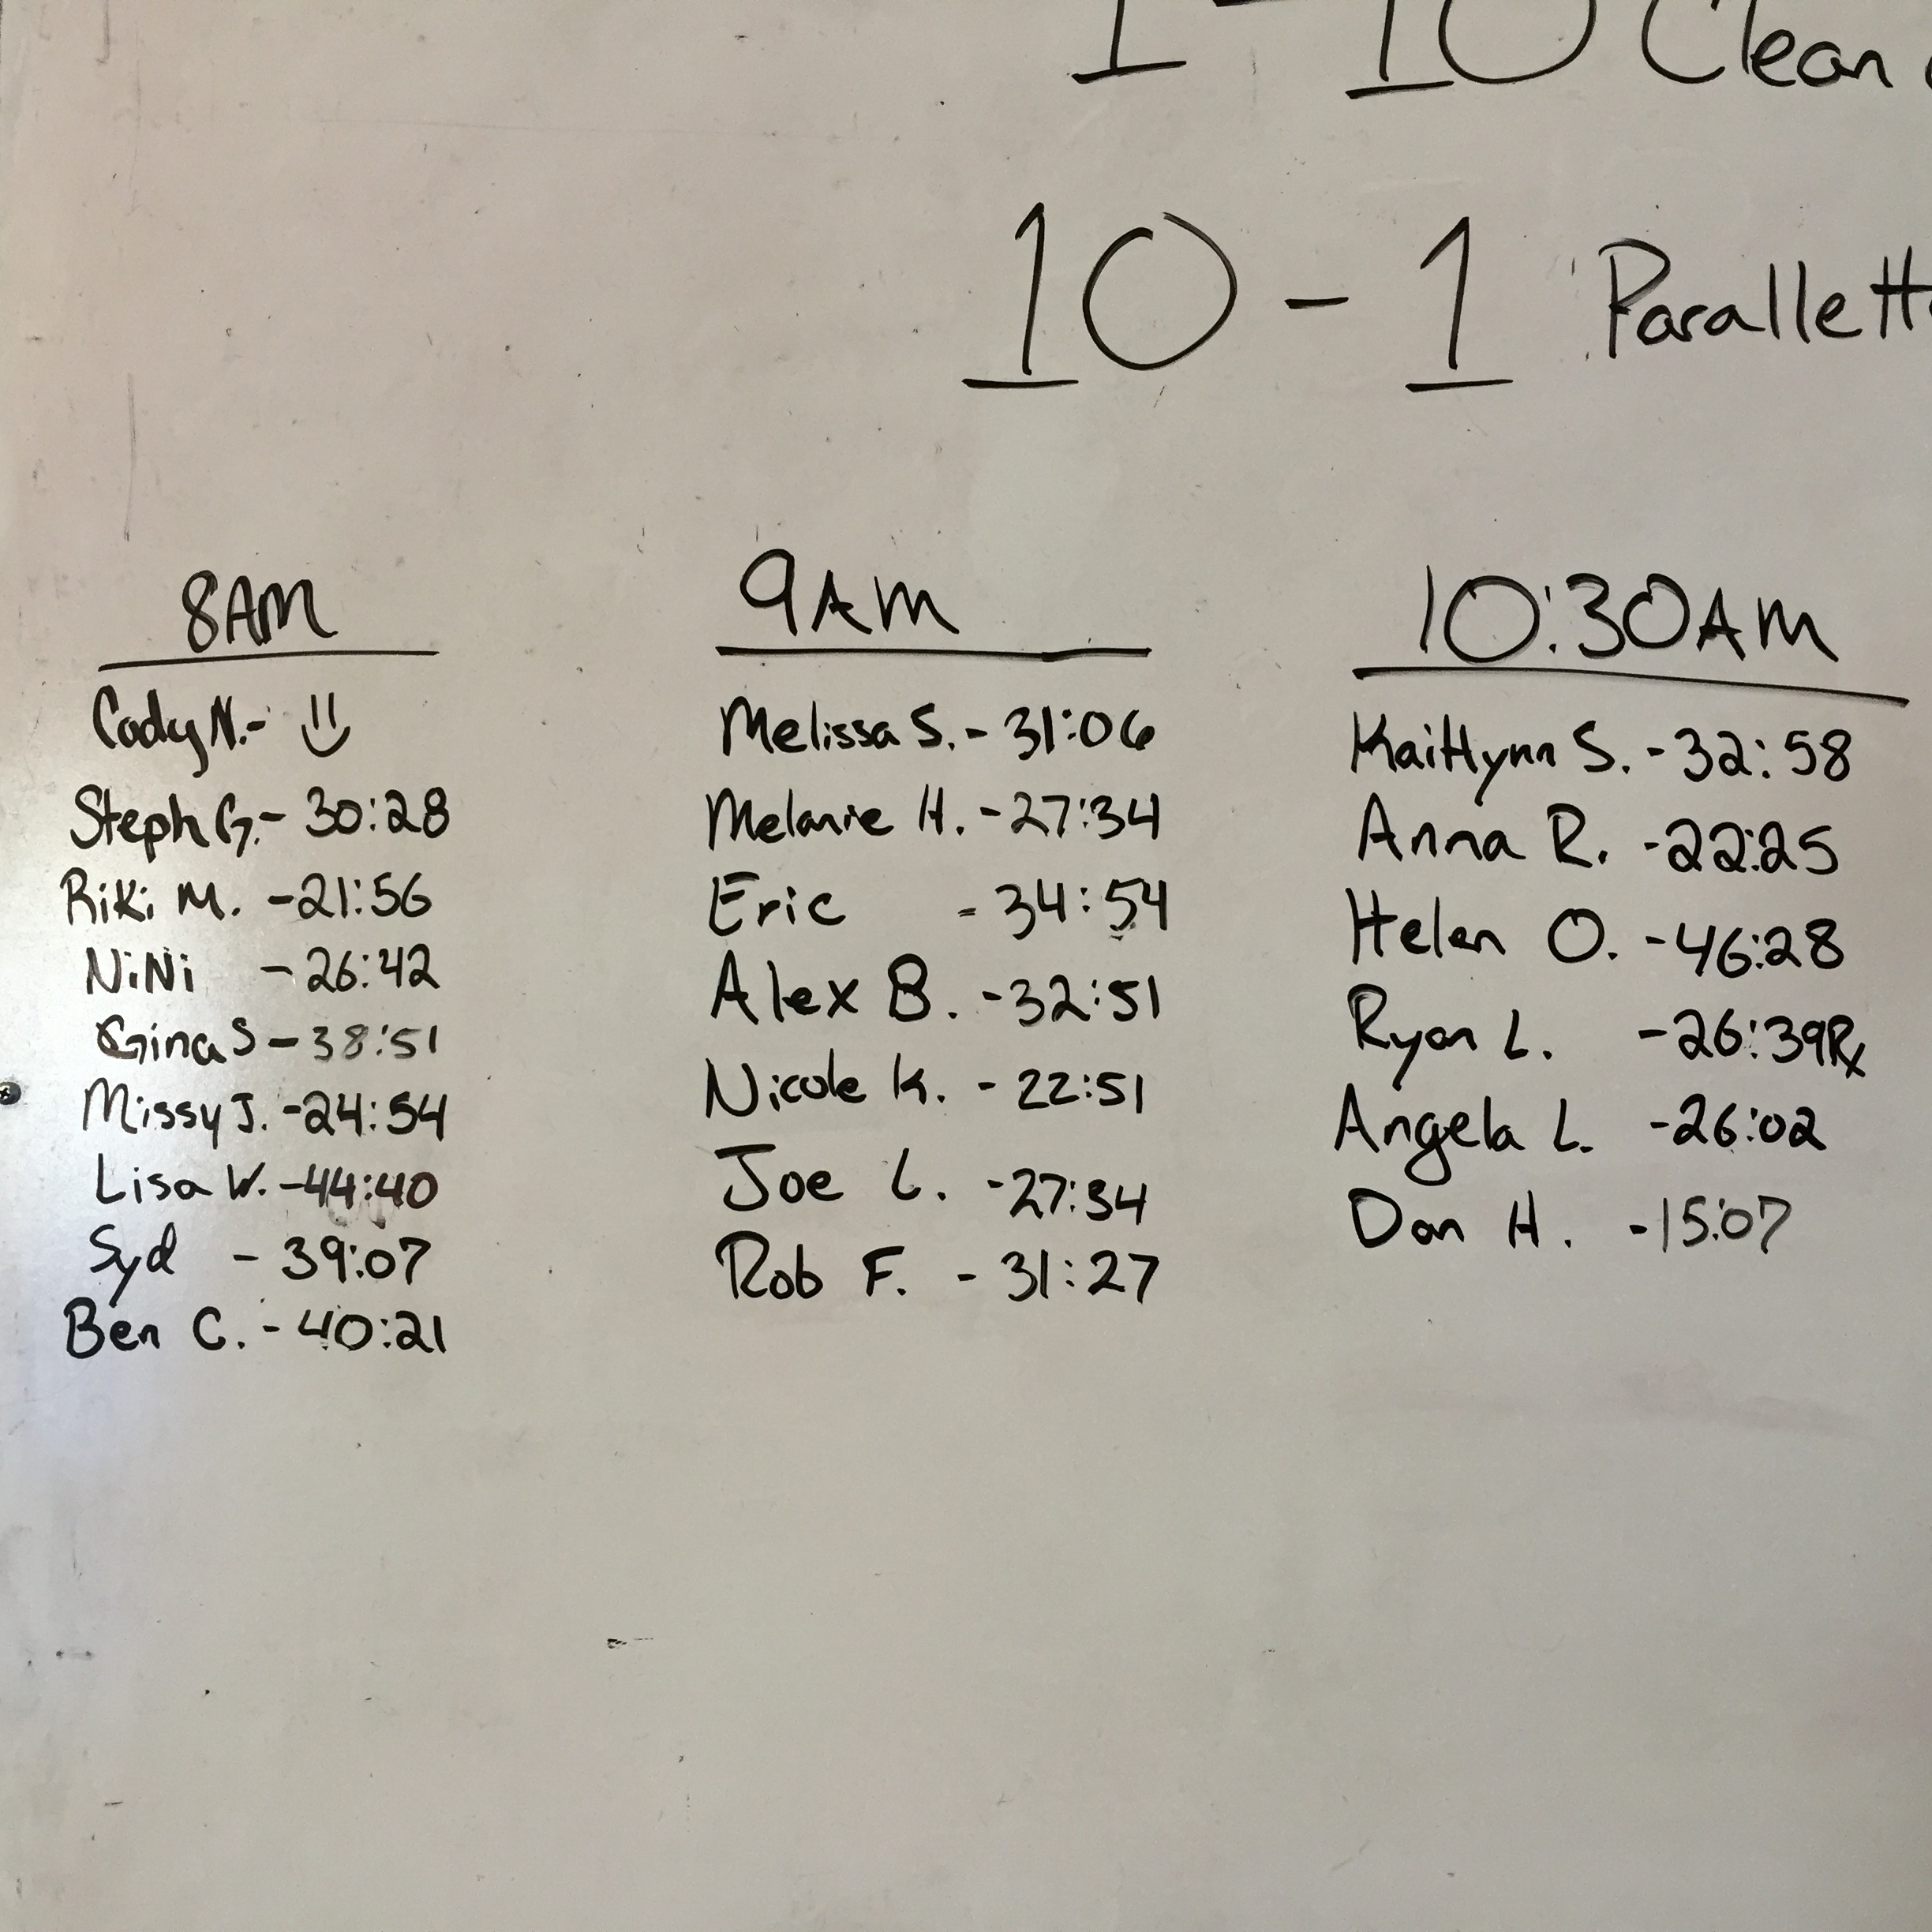 1-10 Clean
10-1 Parallett
8AM
Cody N.- 
Steph G.- 30:28
Riki M. -21:56
NiNi -26:42
Gina S -38:51
Missy J. -24:54
Lisa W. -44:40
Syd - 39:07
Ben C. - 40:21
9AM
Melissa S. - 31:06
Melanie H. -27:34
Eric - 34:54
Alex B. -32:51
Nicole K. - 22:51
Joe L. -27:34
Rob F. - 31:27
10:30AM
Kaitlynn S. -32:58
Anna R. -22:25
Helen O. -46:28
Ryan L. -26:39Rx
Angela L. -26:02
Dan H. -15:07